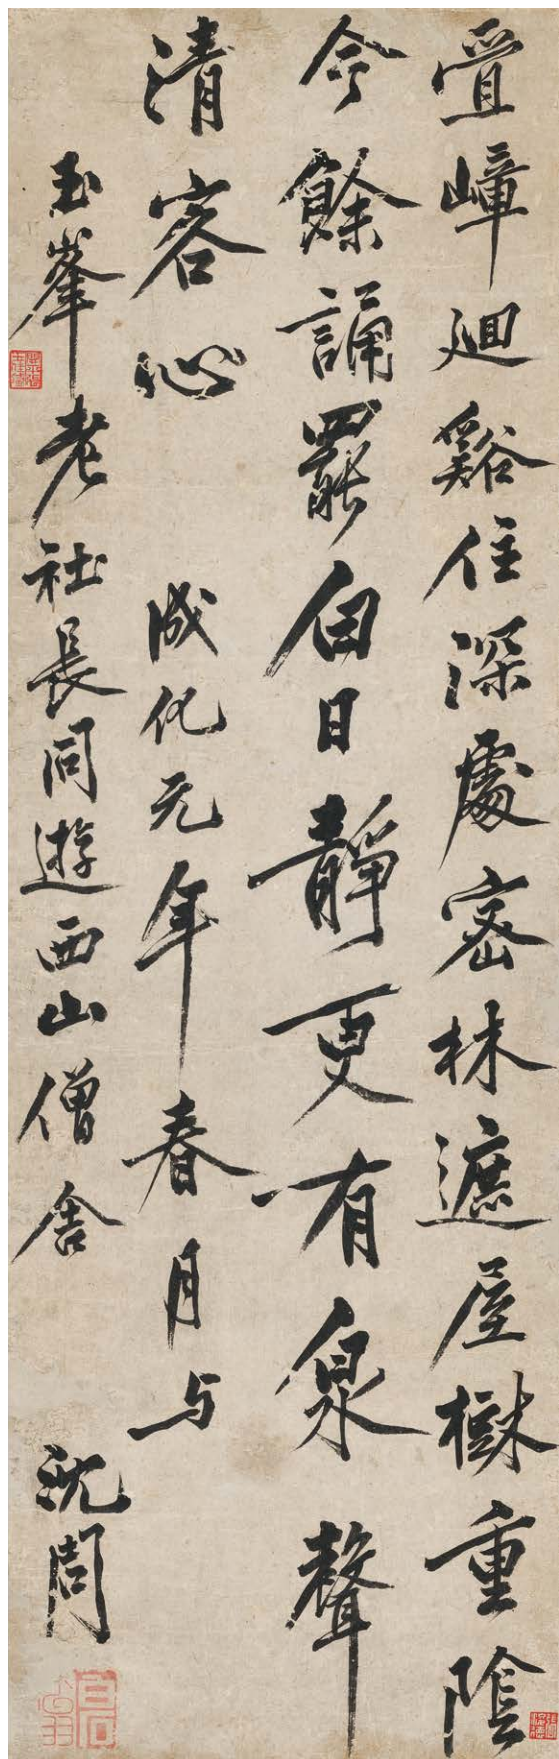 疊嶂迴谿住深處密林遮屋樹重陰
今餘誦罷白日靜更有泉聲
清客心 成化元年春月与
玉峯老社長同遊西山僧舍 沈周
白石翁